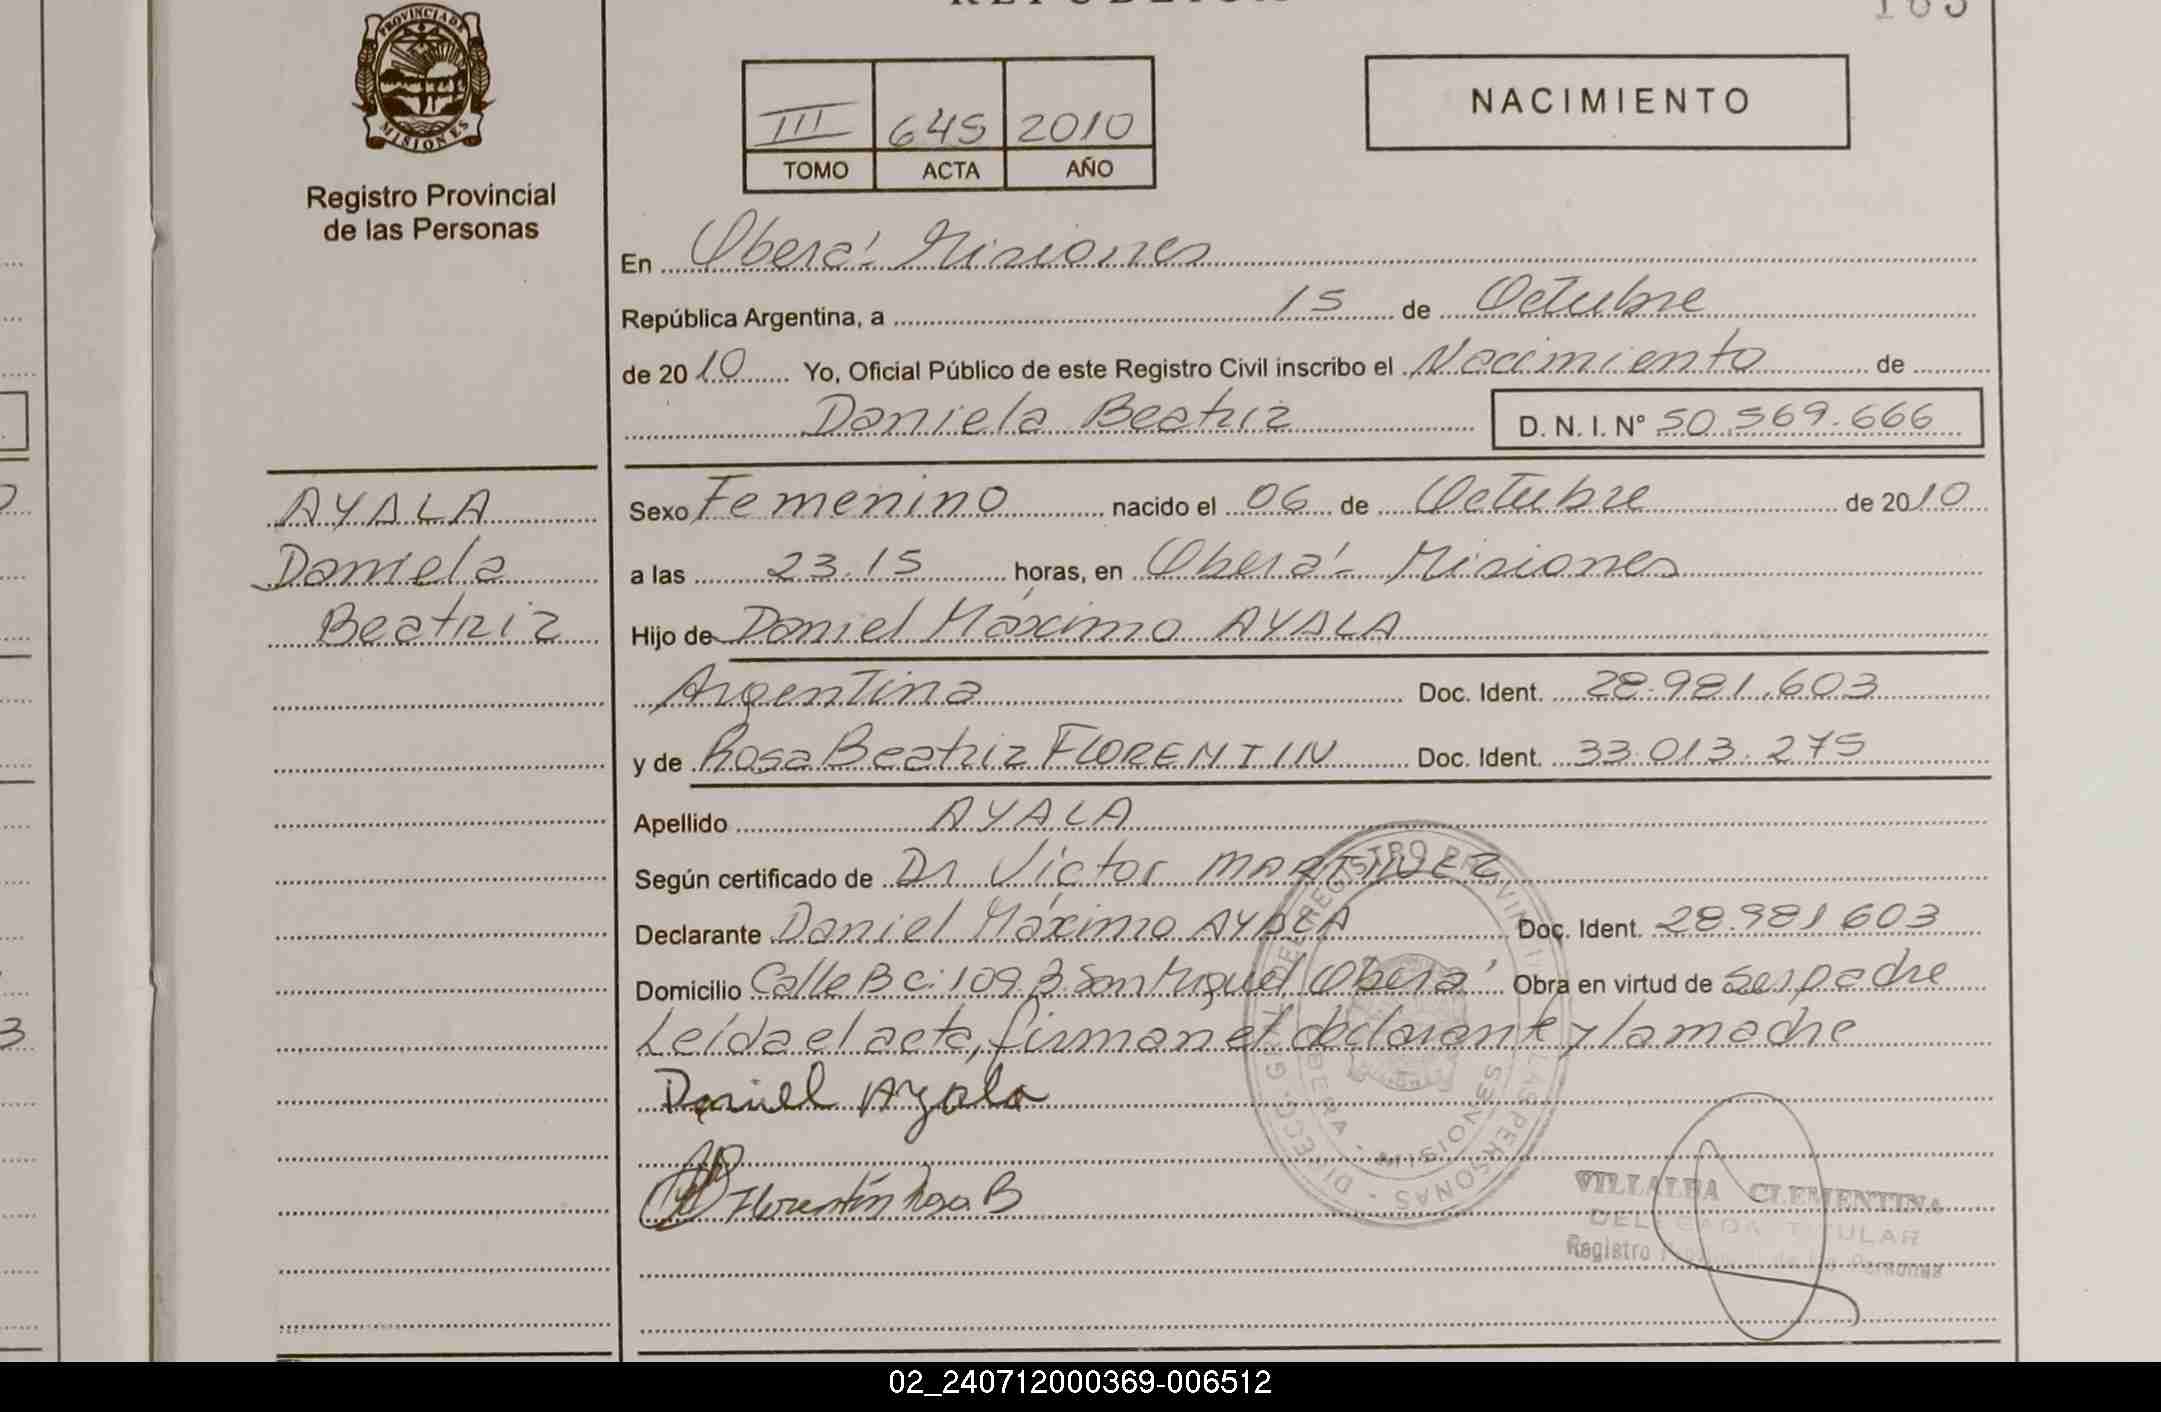 PROVINCIA DE
MISIONES
Registro Provincial
de las Personas
III 645 2010
TOMO ACTA AÑO
NACIMIENTO
En Oberá - Misiones
República Argentina, a 15 de Octubre
de 2010 Yo, Oficial Público de este Registro Civil inscribo el Nacimiento de
Daniela Beatriz D. N. I. N° 50.569.666
AYALA
Daniela
Beatriz
Sexo Femenino nacido el 06 de Octubre de 2010
a las 23.15 horas, en Oberá - Misiones
Hijo de Daniel Máximo AYALA
Argentina Doc. Ident. 28.981.603
y de Rosa Beatriz FLORENTIN Doc. Ident. 33.013.275
Apellido AYALA
Según certificado de Dr Víctor MARTINEZ
Declarante Daniel Máximo AYALA Doc. Ident. 28.981.603
Domicilio Calle B C: 109 B San Miguel Oberá Obra en virtud de ser padre
Leída el acta, firman el declarante y la madre
Daniel Ayala
Florentín Rosa B
VILLALBA CLEMENTINA
DELEGADA TITULAR
Registro Provincial de las Personas
02_240712000369-006512